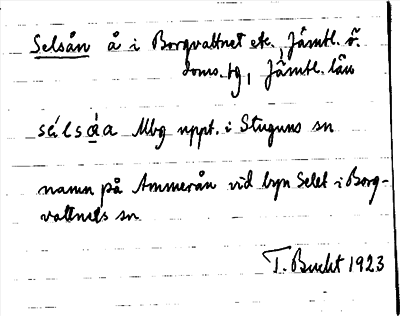 Selsån å i Borgvattnet etc., Jämtl. ö.
doms.tg, Jämtl. län
sélsа̱́a Mbg uppt. i Stuguns sn
namn på Ammerån vid byn Selet i Borg-
vattnets sn
T. Bucht 1923